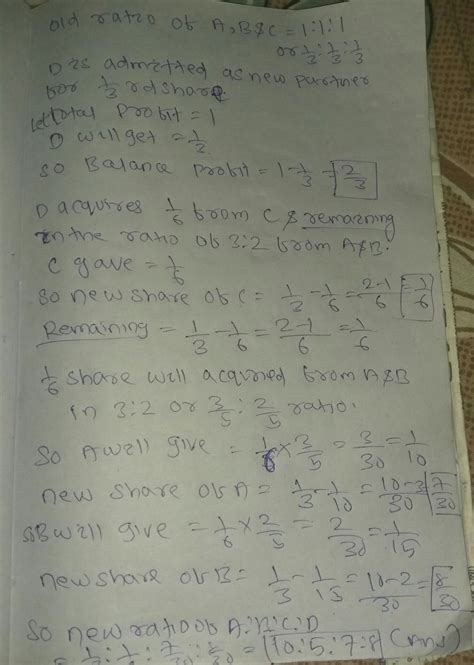 old ratio of A,B&C = 1:1:1
or 1/3:1/3:1/3
D is admitted as new partner
for 1/3 rd share.
let total Profit = 1
D will get = 1/3
so Balance profit = 1-1/3 = 2/3
D acquires 1/6 from C & remaining
in the ratio of 3:2 from A&B.
C gave = 1/6
so new share of C = 1/3 - 1/6 = 2-1/6 = 1/6
Remaining = 1/3 - 1/6 = 2-1/6 = 1/6
1/6 share will acquired from A&B
in 3:2 or 3/5:2/5 ratio.
So A will give = 1/6 × 3/5 = 3/30 = 1/10
new share of A = 1/3 - 1/10 = 10-3/30 7/30
B will give = 1/6 × 2/5 = 2/30 = 1/15
new share of B = 1/3 - 1/15 = 10-2/30 = 8/30
So new ratio of A:B:C:D
= 1/3:1/6:7/30:8/30 = 10:5:7:8 (Ans)